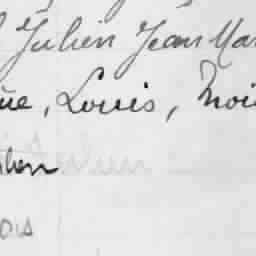 Julien Jean Mar
ue, Louis, Moi
ois